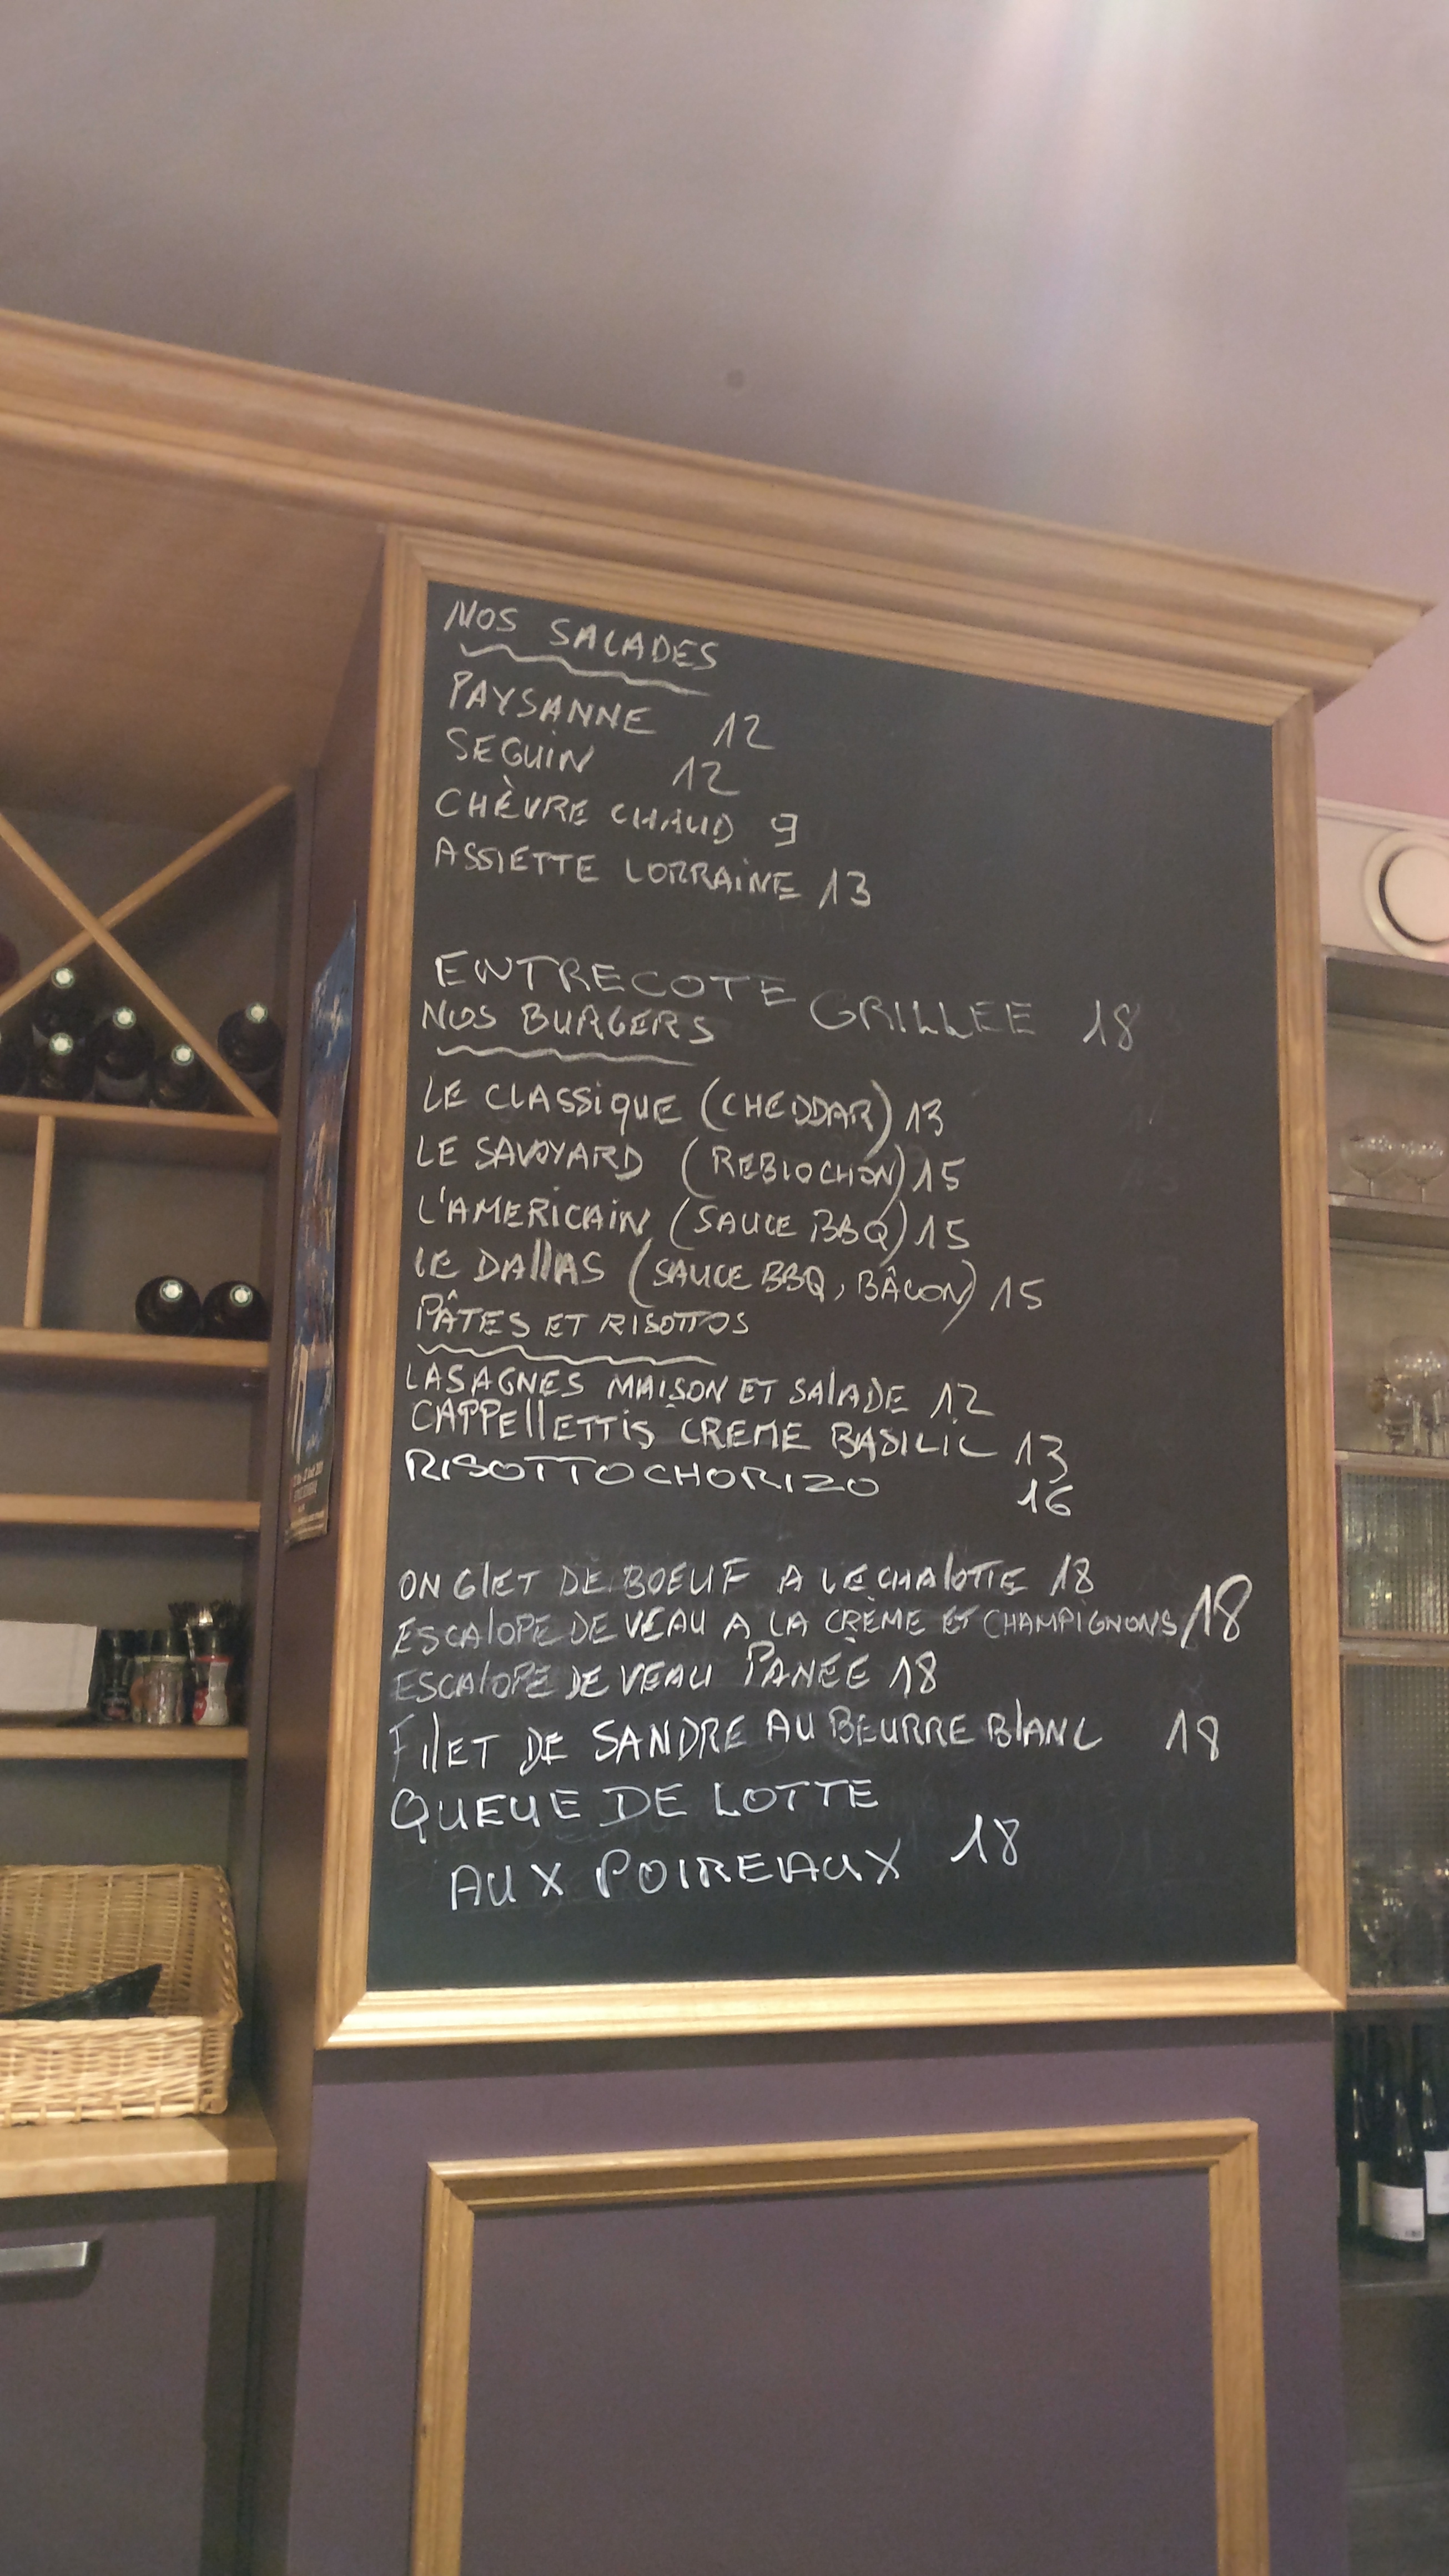 NOS SALADES
PAYSANNE 12
SEGUIN 12
CHÈVRE CHAUD 9
ASSIETTE LORRAINE 13
ENTRECOTE GRILLEE 18
NOS BURGERS
LE CLASSIQUE (CHEDDAR) 13
LE SAVOYARD (REBLOCHON) 15
L'AMERICAIN (SAUCE BBQ) 15
LE DALLAS (SAUCE BBQ, BÂCON) 15
PÂTES ET RISOTTOS
LASAGNES MAISON ET SALADE 12
CAPPELLETTIS CREME BASILIC 13
RISOTTO CHORIZO 16
ONGLET DE BOEUF A LECHALOTTE 18
ESCALOPE DE VEAU A LA CRÈME ET CHAMPIGNONS 18
ESCALOPE DE VEAU PANÉE 18
FILET DE SANDRE AU BEURRE BLANC 18
QUEUE DE LOTTE
AUX POIREAUX 18